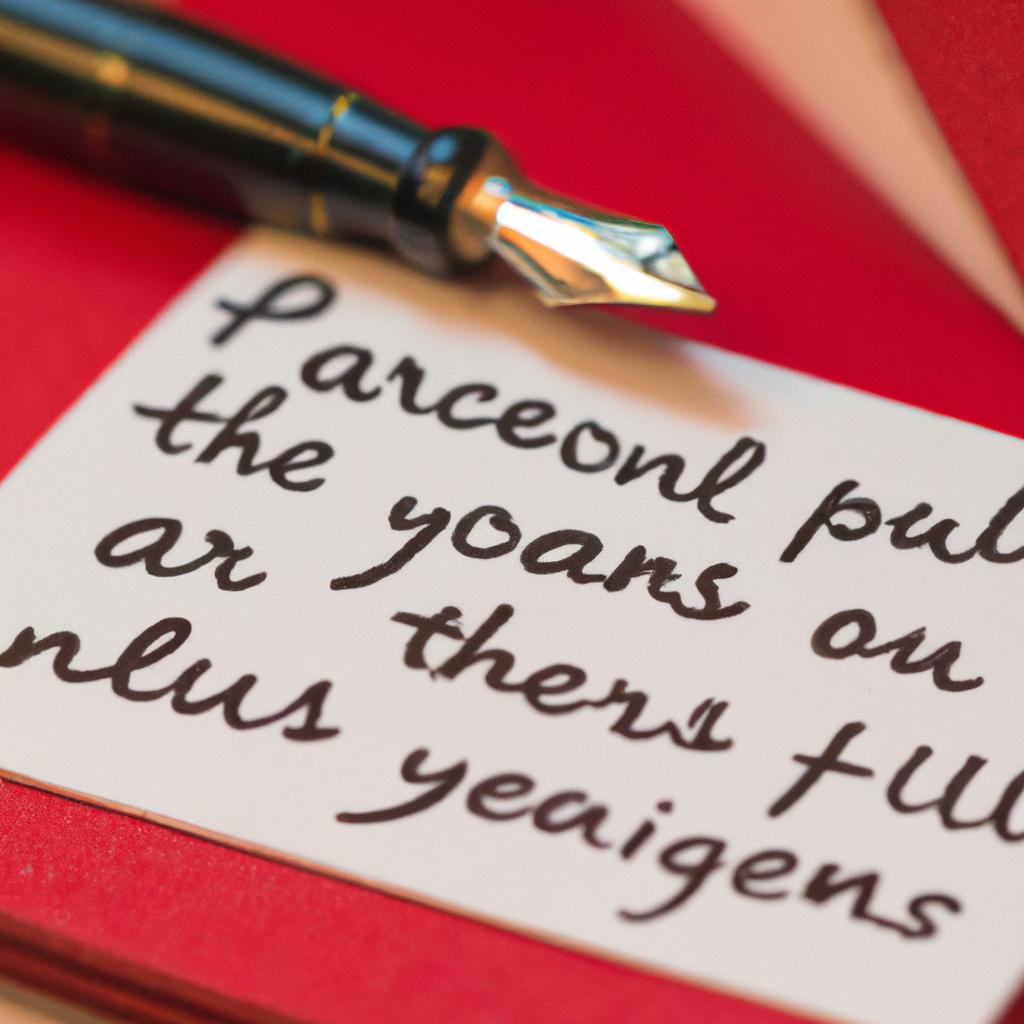 Parceonl pul
the yoans ou
ar thers full
nlus yeaigens